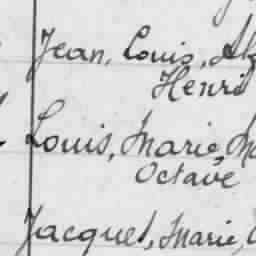 Jean, Louis,
Henri
Louis, Marie,
Octave
Jacques, Marie,